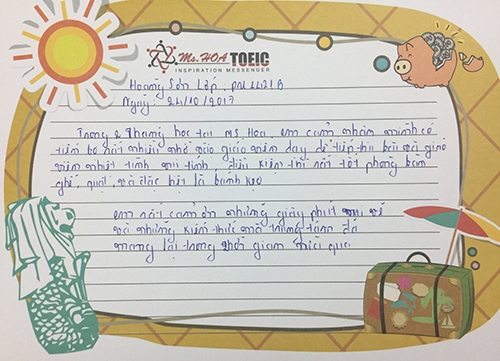 Ms.HOA TOEIC
INSPIRATION MESSENGER
Hoàng Sơn Lớp: PM 2421B
Ngày: 24/10/2017
Trong 2 tháng học tại MS Hoa, em cảm nhận mình có
tiến bộ rất nhiều nhờ vào giáo viên dạy dễ tiếp thu bài và giáo
viên nhiệt tình vui tính, điều kiện thì rất tốt phòng bàn
ghế, quạt, và đặc biệt là bánh kẹo
em rất cảm ơn những giây phút vui vẻ
và những kiến thức mà trung tâm đã
mang lại trong thời gian vừa qua